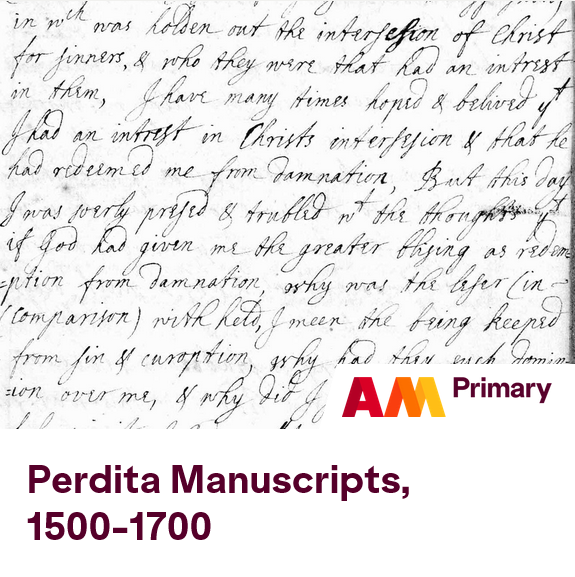 in wch was holden out the intersesion of Christ
for sinners, & who they were that had an intrest
in them, I have many times hoped & belived yt
I had an intrest in Christs intersesion & that he
had redeemed me from damnation, But this day
I was verly presed & trubled wt the thoughts yt
if God had given me the greater blising as redem=
=ption from damnation, why was the leser (in-
(comparison) with held, I meen the being keeped
from sin & curoption, why had they such domin
=ion over me, & why did I
AM Primary
Perdita Manuscripts,
1500-1700